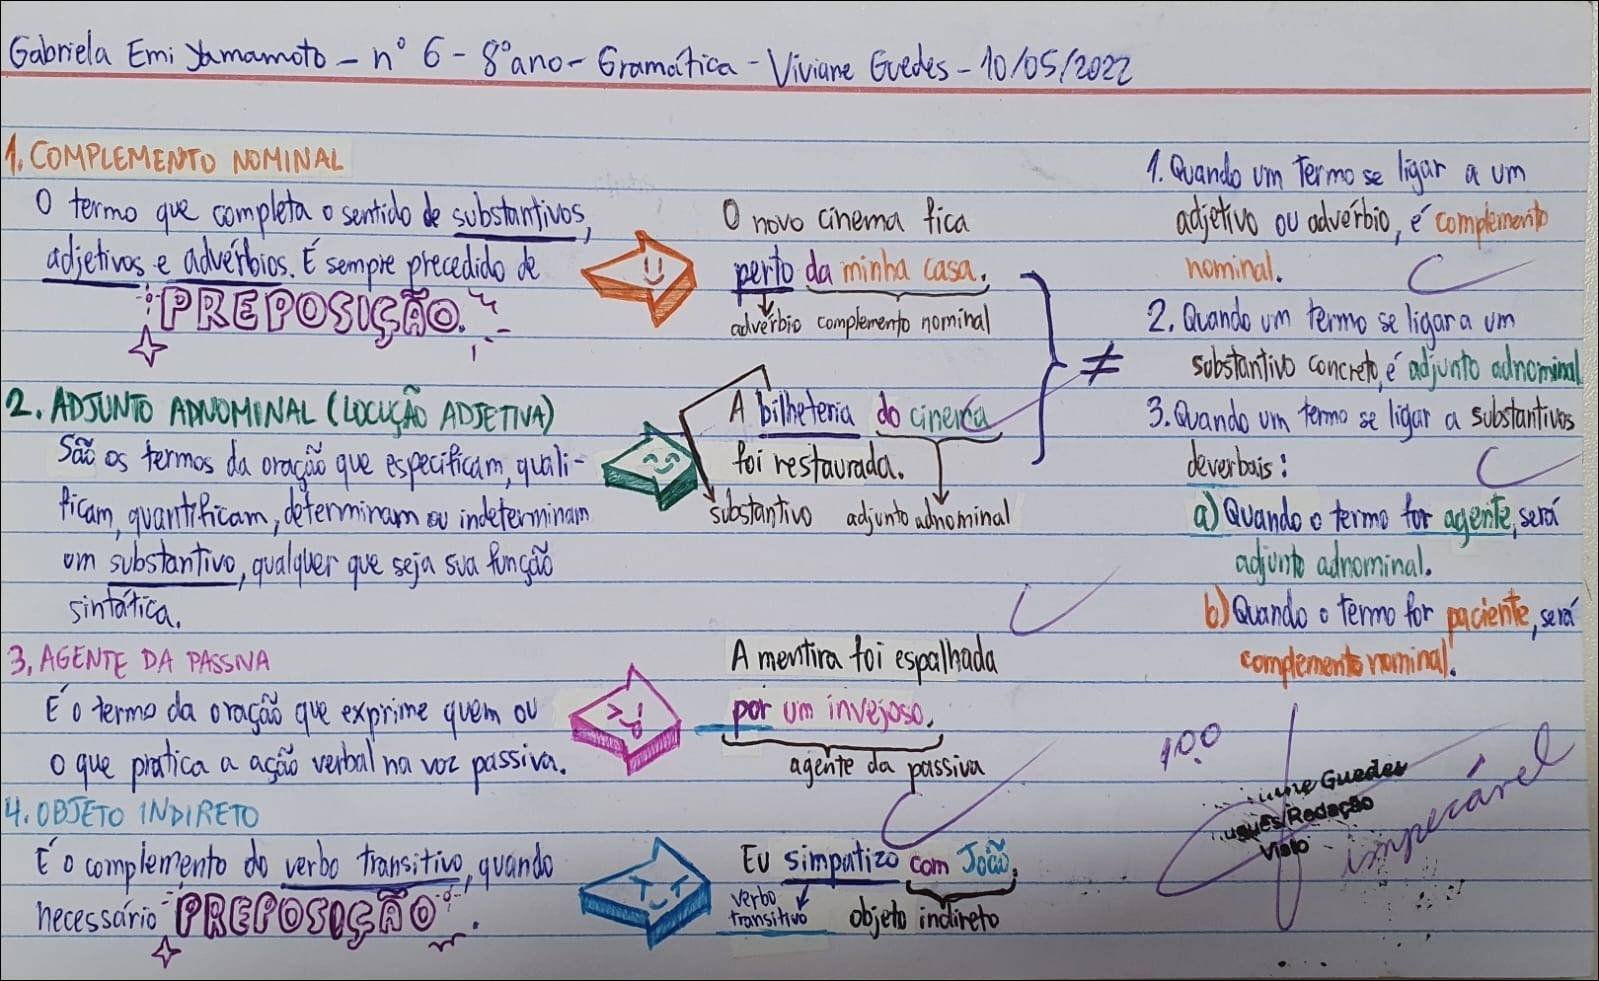 Gabriela Emi Yamamoto - nº 6 - 8º ano - Gramática - Viviane Guedes - 10/05/2022
1. COMPLEMENTO NOMINAL
O termo que completa o sentido de substantivos,
adjetivos e advérbios. É sempre precedido de
PREPOSIÇÃO.
O novo cinema fica
perto da minha casa.
advérbio complemento nominal
2. ADJUNTO ADNOMINAL (LOCUÇÃO ADJETIVA)
São os termos da oração que especificam, quali-
ficam, quantificam, determinam ou indeterminam
um substantivo, qualquer que seja sua função
sintática.
A bilheteria do cinema
foi restaurada.
substantivo adjunto adnominal
≠
3. AGENTE DA PASSIVA
É o termo da oração que exprime quem ou
o que pratica a ação verbal na voz passiva.
A mentira foi espalhada
por um invejoso.
agente da passiva
4. OBJETO INDIRETO
É o complemento do verbo transitivo, quando
necessário PREPOSIÇÃO.
Eu simpatizo com João.
verbo
transitivo objeto indireto
1. Quando um termo se ligar a um
adjetivo ou advérbio, é complemento
nominal.
2. Quando um termo se ligar a um
substantivo concreto, é adjunto adnominal
3. Quando um termo se ligar a substantivos
deverbais:
a) Quando o termo for agente, será
adjunto adnominal.
b) Quando o termo for paciente, será
complemento nominal.
10,0
Guedes
Redação
Visto
impecável